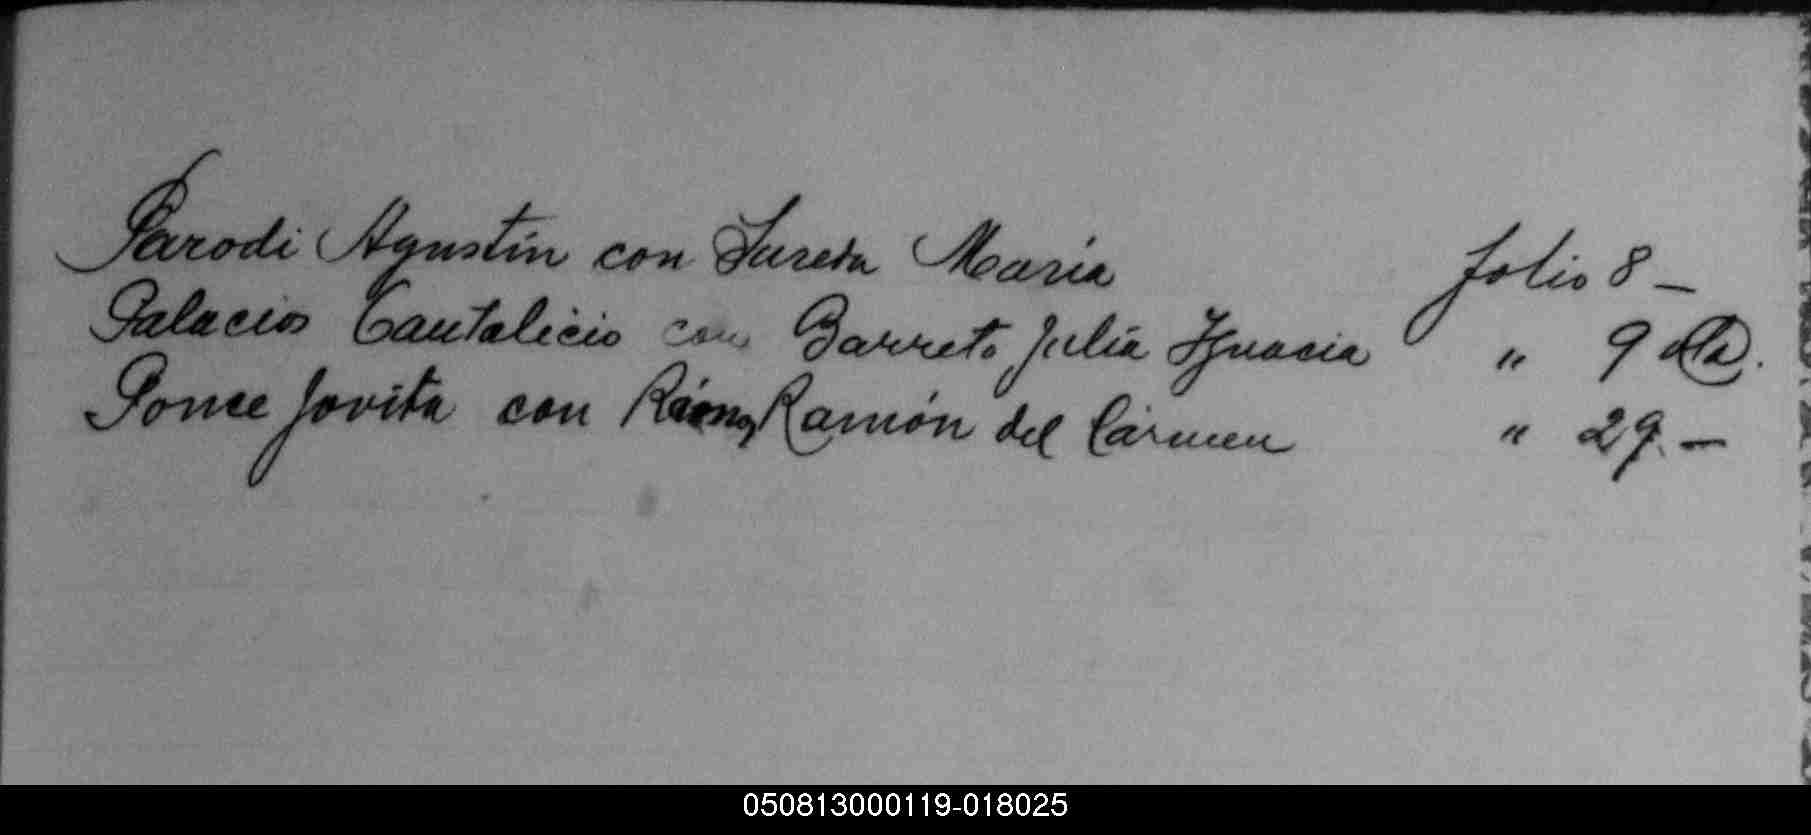 Parodi Agustín con Sureda María folio 8 —
Palacios Cantalicio con Barreto Julia Ignacia " 9 vta.
Ponce Jovita con Ramón del Cármen " 29. —
050813000119-018025